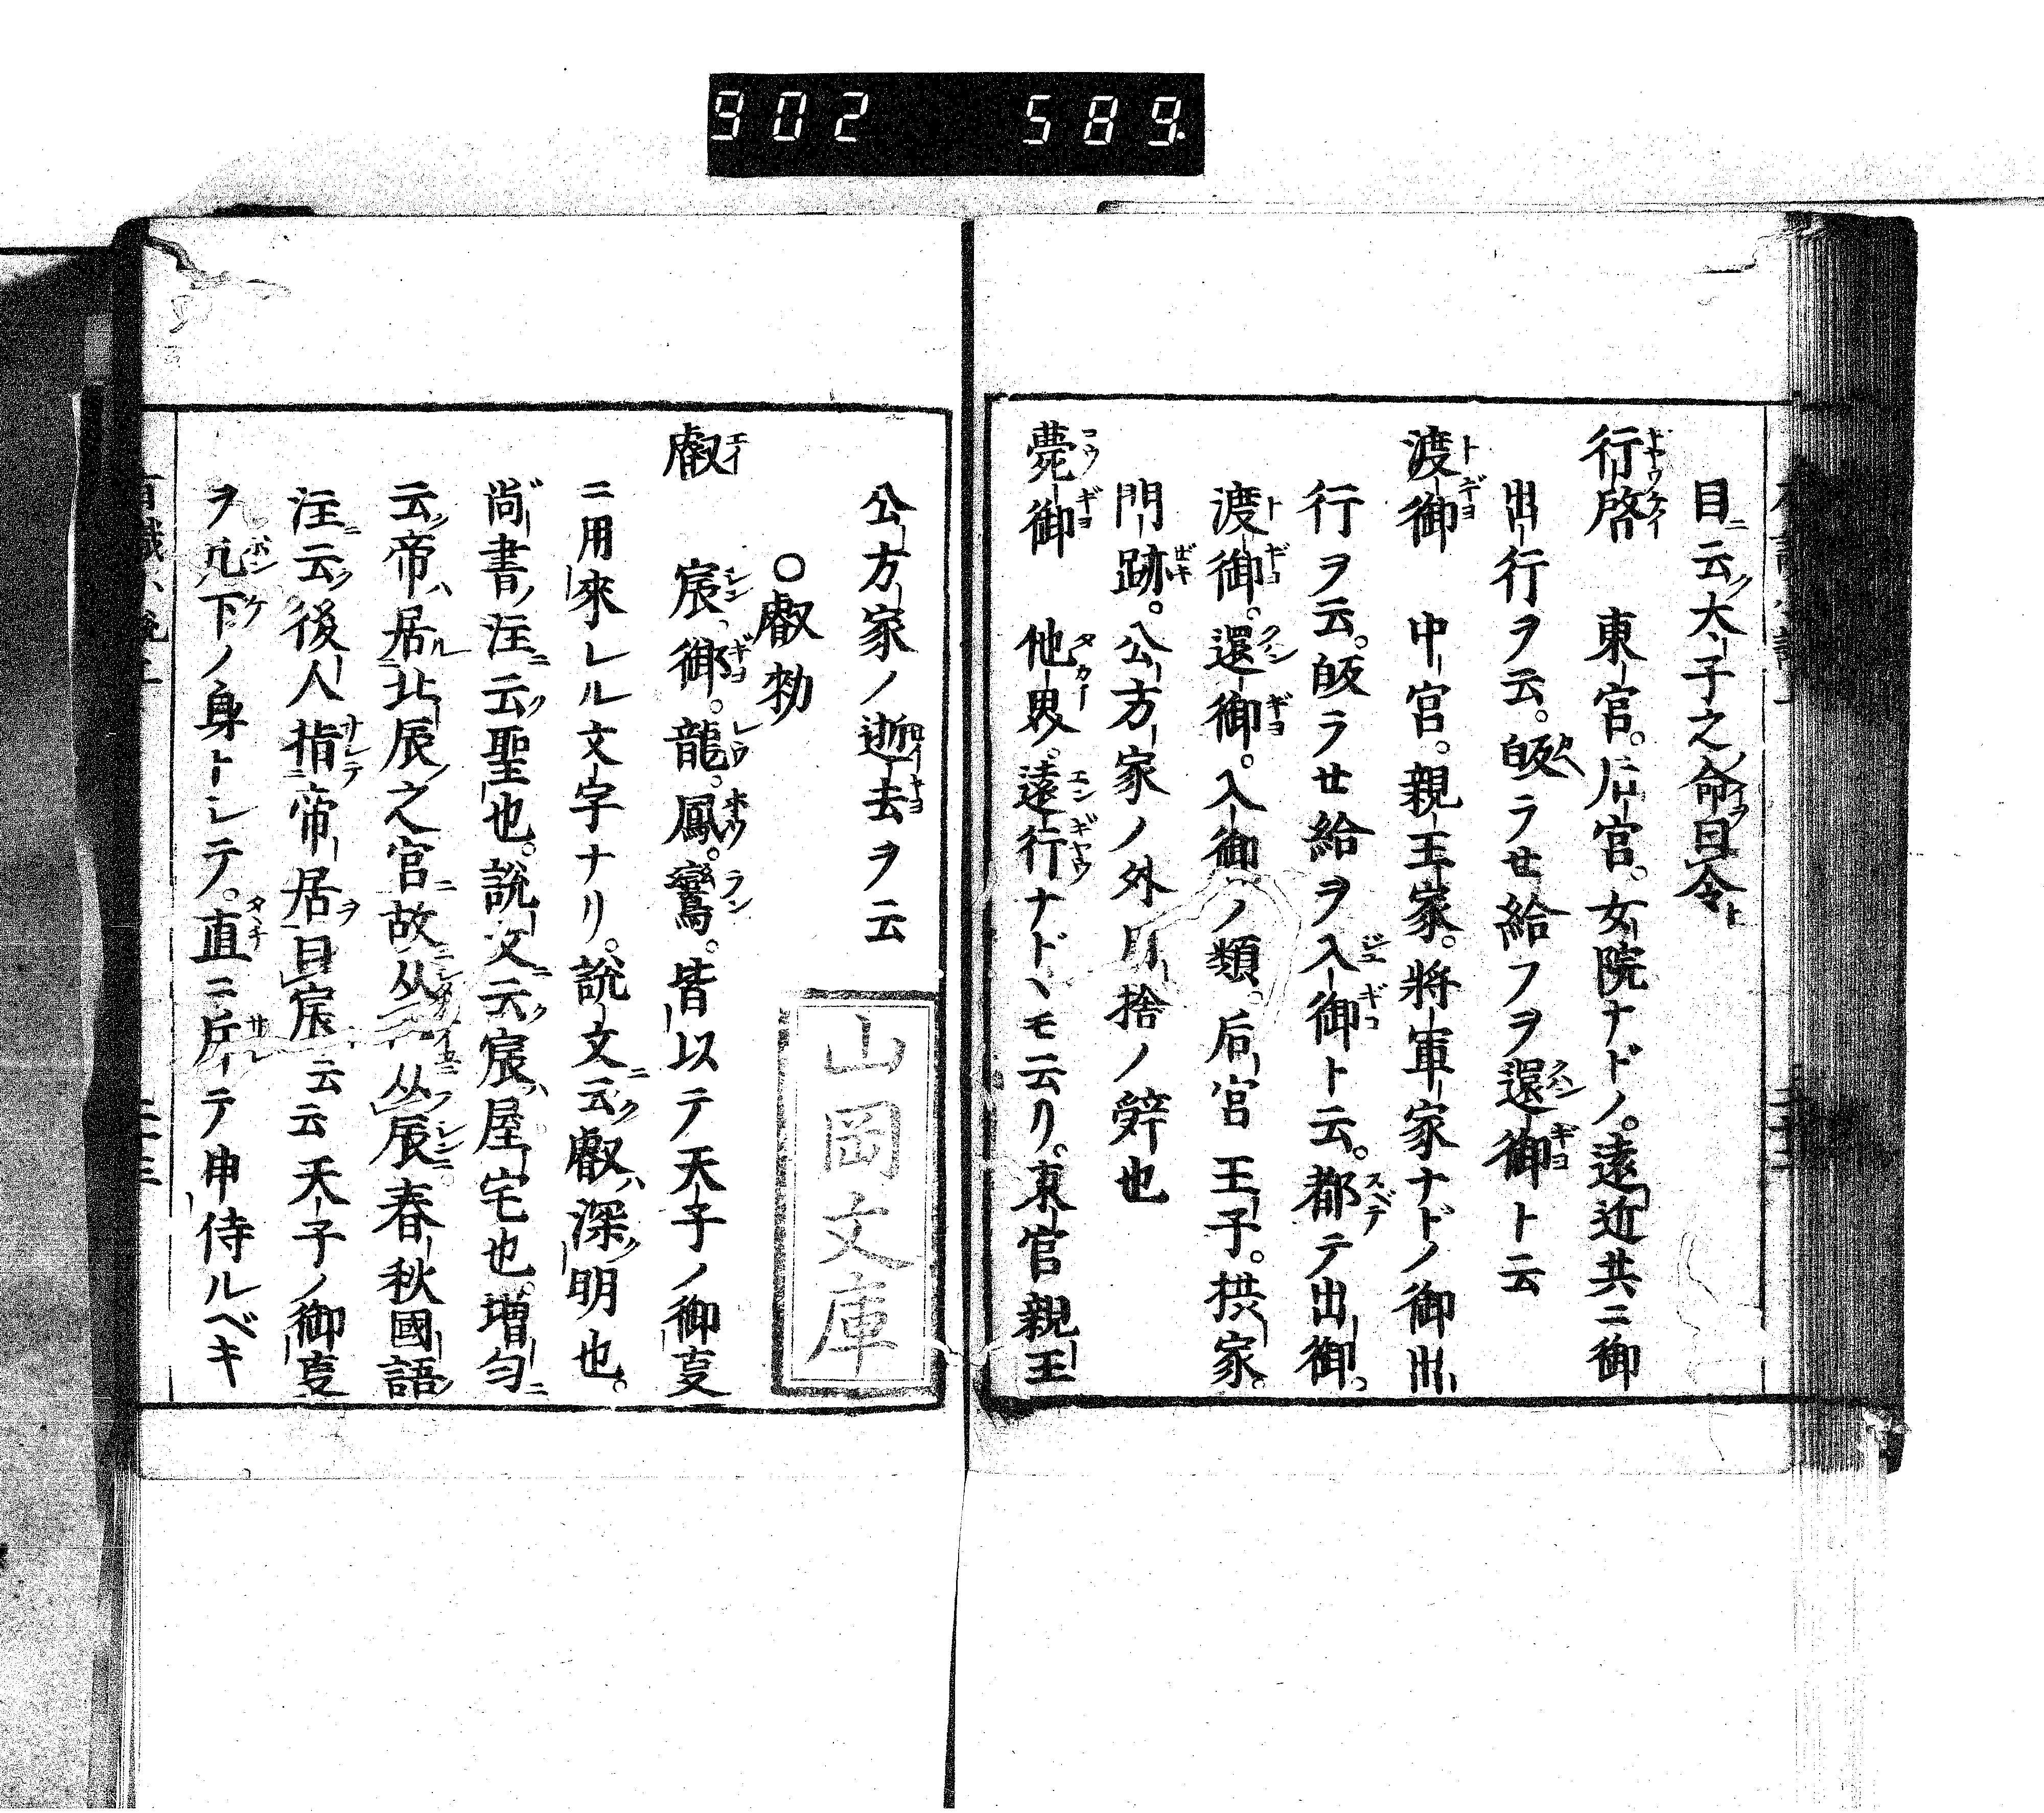 902 589
目ニ云ク太子之命曰令ト
行啓 東宮。后宮。女院ナドノ。遠近共ニ御
出行ヲ云。皈ラせ給フヲ還御ト云
渡御 中宮。親王家。將軍家ナドノ御出
行ヲ云。皈ラせ給ヲ入御ト云。都テ出御。
渡御。還御。入御ノ類。后宮 王子。摂家。
門跡。公方家ノ外用捨ノ辤也
薨御 他界。遠行ナドヽモ云リ。東宮親王
公方家ノ逝去ヲ云
○叡勅
叡 宸。御。龍。鳳。鸞。皆以テ天子ノ御叓
ニ用來レル文字ナリ。說文ニ云ク叡ハ深明也。
尚書ノ注ニ云ク聖也。說文ニ云ク宸ハ屋宅也。増匀ニ
云ク帝ハ居ル北辰之宮ニ故从宀从辰春秋國語
注ニ云ク後人指テ帝居ヲ曰宸云云天子ノ御叓
ヲ凢下ノ身トシテ。直ニ斥テ申侍ルベキ
山岡文庫